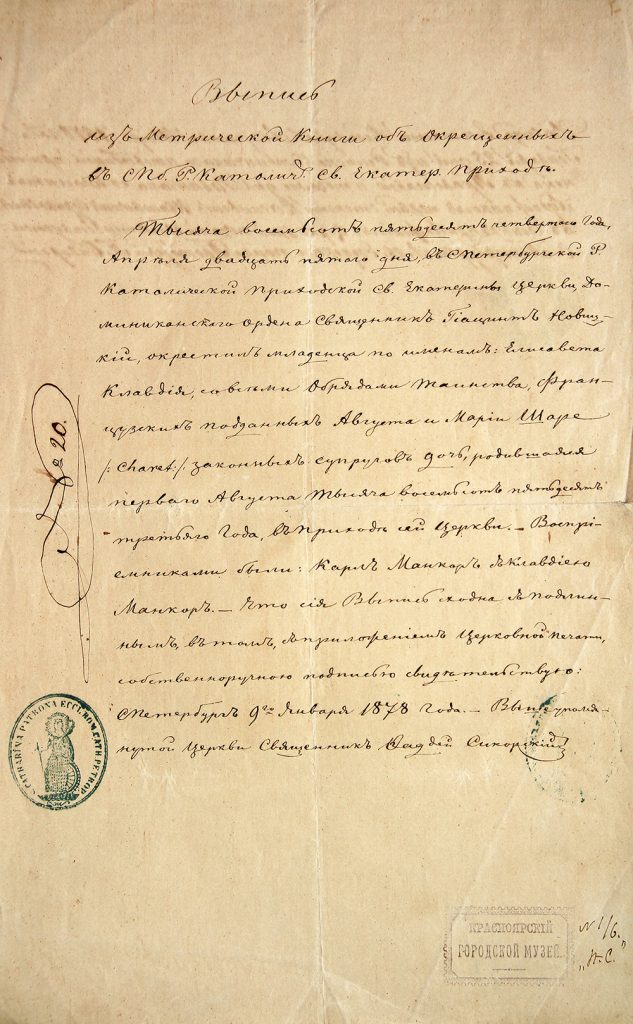 Выпись
изъ Метрической Книги объ Окрещенныхъ
въ СПб. Р. Католич. Св. Екатер. приходѣ.
Тысяча восемьсотъ пятьдесятъ четвертаго Года,
Апрѣля двадцать пятаго дня, въ СПетербургской Р.
Католической приходской Св. Екатерины Церкви, До-
миниканскаго Ордена Священникъ Гіацинтъ Новиц-
кій, окрестилъ младенца по именамъ: Елисавета
Клавдія, со всѣми Обрядами Таинства, Фран-
цузскихъ подданныхъ Августа и Маріи Шаре
/: Charet :/ законныхъ супруговъ дочь, родившаяся
перваго Августа Тысяча восемьсотъ пятьдесятъ
третьяго Года, въ приходѣ сей Церкви. — Воспрі-
емниками были: Карлъ Манкоръ съ Клавдіею
Манкоръ. — Что сія Выпись сходна съ подлин-
нымъ, въ томъ, съ приложеніемъ Церковной печати,
собственноручною подписью свидѣтельствую:
СПетербургъ 9го Января 1878 года. — Вышеупомя-
нутой Церкви Священникъ Фаддей Сикорскій
№ 20.
S. CATHARINA PATRONA ECCL. ROM. CATH. PETROP.
КРАСНОЯРСКІЙ
ГОРОДСКОЙ МУЗЕЙ
N 1/6.
"Н.С."